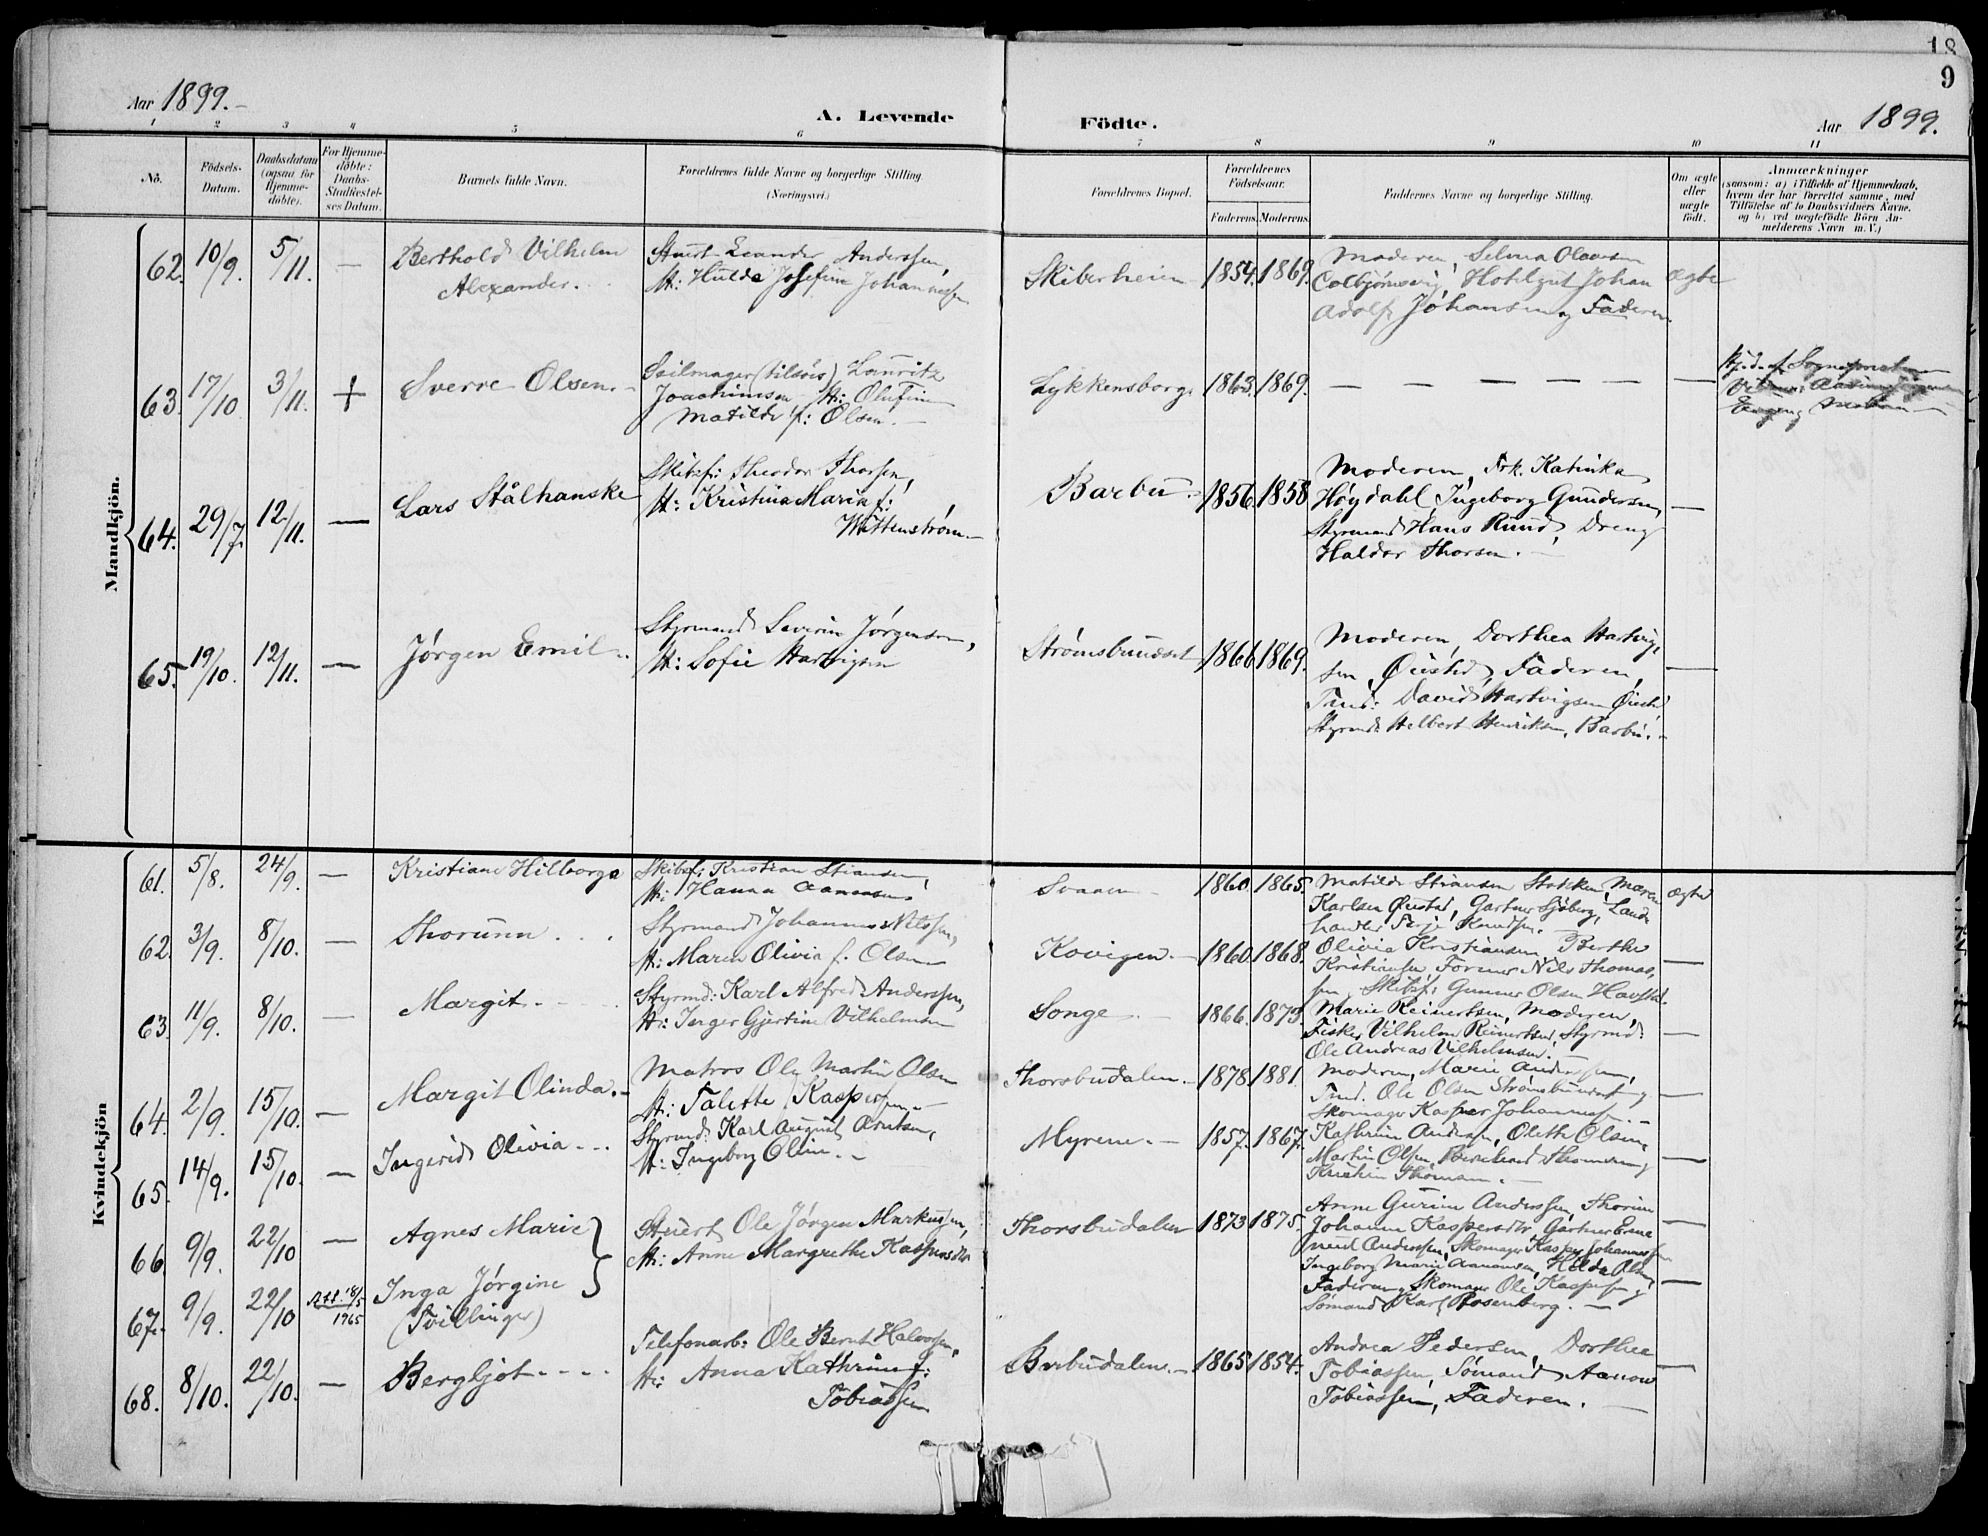 18
9
Aar 1899.
A. Levende
Födte.
Aar 1899.
1 2 3 4 5 6 7 8 9 10 11
No.
Födsels-
Datum.
Daabsdatum
(ogsaa for
Hjemme-
döbte).
For Hjemme-
döbte:
Daabs-
Stadfæstel-
ses Datum.
Barnets fulde Navn.
Forældrenes fulde Navne og borgerlige Stilling.
(Næringsvei.)
Forældrenes Bopæl.
Forældrenes
Födselsaar.
Faderens. Moderens.
Faddernes Navne og borgerlige Stilling.
Om ægte
eller
uægte
født.
Anmærkninger
(saasom: a) i Tilfælde af Hjemmedaab,
hvem der har forrettet samme, med
Tilföielse af to Daabsvidners Navne,
og b) ved uægtefödte Börn An-
melderens Navn m. V.)
Mandkjön.
62. 10/9. 5/11. —
Berthold Vilhelm
Alexander.
Stuert Leander Anderssen,
H: Hulda Josefine Johannessen
Skiberheien
1854. 1869.
Moderen, Selma Olaussen
Colbjørnsvig, Hotelgut Johan
Adolf Johansen og Faderen.
ægte
63. 17/10. 3/11. +
Sverre Olsen.
Seilmager (tilsøs) Lauritz
Joachimsen H: Olufine
Matilde f: Olsen.
Lykkensborg
1863. 1869.
— — — — — —
64. 29/7. 12/11. —
Lars Stålhanske
Skibsf: Theodor Thorsen,
H: Kristina Maria f:
Wittenstrøm
Barbu.
1856. 1858
Moderen, Frk. Katinka
Høydahl, Ingeborg Gundersen,
Styrmand Hans Ruud, Dreng
Haldor Thorsen.
—
65. 19/10. 12/11. —
Jørgen Emil
Styrmand Severin Jørgensen,
H: Sofie Hartvigsen
Strømsbuneset
1866 1869.
Moderen, Dorthea Hartvig-
sen, Øiestad, Faderen,
Tmd: David Hartvigsen Øiest
Styrmd: Helbert Henriksen, Barbu.
—
Kvindekjön
61. 5/8. 24/9. —
Kristiane Hilborga
Skibsf: Kristian Stiansen,
H: Hanna Aanonsen
Svaaen
1860. 1865.
Matilde Stiansen Stokken, Maren
Karlsen Øiestad, Gartner Sjöberg, Land-
handler Terje Knudsen.
ægte
62. 3/9. 8/10. —
Thorunn
Styrmand Johannes Nilssen,
H: Maren Olivia f. Olsen
Kovigen.
1860. 1868.
Olivia Kristiansen, Berthe
Kristiansen, Former Nils Thomas-
sen, Skibsf: Gunner Olsen Havstad.
—
63. 11/9. 8/10. —
Margit
Styrmd: Karl Alfred Anderssen,
H: Inger Gjertine Vilhelmsen
Songe
1866. 1873.
Marie Reinertsen, Moderen,
Fisker Vilhelm Reinertsen, Styrmd:
Ole Andreas Vilhelmsen.
—
64. 2/9. 15/10. —
Margit Olinda.
Matros Ole Martin Olsen
H: Talette Kaspersen
Thorsbudalen
1878. 1881.
Moderen, Marie Anderssen,
Tmd: Ole Olsen Strømsbuneset og
Skomager Kasper Johannessen
—
65. 14/9. 15/10. —
Ingerid Olivia
Styrmd: Karl August Arntsen,
H: Ingeborg Oline
Myrene.
1857. 1867.
Kathrine Andersen, Olette Olsen,
Martin Olsen, Bernhard Thomsen og
Kristin Thomsen.
—
66. 9/9. 22/10 —
Agnes Marie
Stuert Ole Jørgen Markussen,
H: Anne Margrethe Kaspersdtr
Thorsbudalen
1873 1875.
Anne Gurine Anderssen, Thorine
Johanne Kaspersdtr, Gartner Emanuel Anderssen, Skomager Kasper Johannessen
—
67. 9/9. 22/10 Att. 18/5
1965
Inga Jørgine
(Tvillinger)
Ingeborg Marie Aanonsen, Hilda Olsen,
Faderen, Skomager Ole Kaspersen og
Sømand Karl Rosenberg.
—
68. 8/10. 22/10. —
Bergljot
Telefonarb: Ole Bernt Halvorsen,
H: Anna Kathrine f:
Tobiassen
Barbudalen
1865 1854.
Andrea Pedersen, Dorthea
Tobiassen, Sømand Aanon
Tobiassen, Faderen.
—